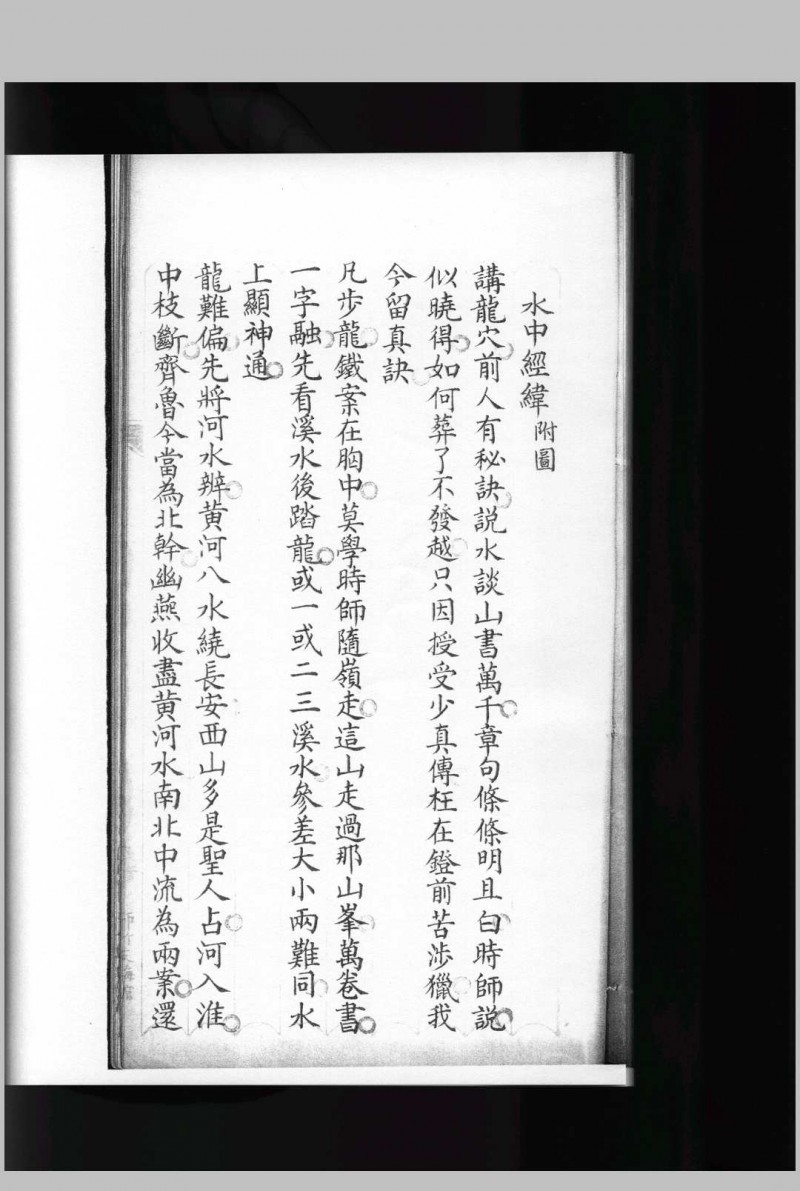 水中經緯附圖
講龍穴前人有秘訣説水談山書萬千章句條條明且白時師説
似曉得如何葬了不發越只因授受少真傳枉在鐙前苦涉獵我
今留真訣
凡步龍鐵案在胸中莫學時師隨嶺走這山走過那山峯萬卷書
一字融先看溪水後踏龍或一或二三溪水參差大小兩難同水
上顯神通
龍難偏先將河水辨黄河八水繞長安西山多是聖人占河入淮
中枝斷齊魯今當為北幹幽燕收盡黄河水南北中流為兩案還